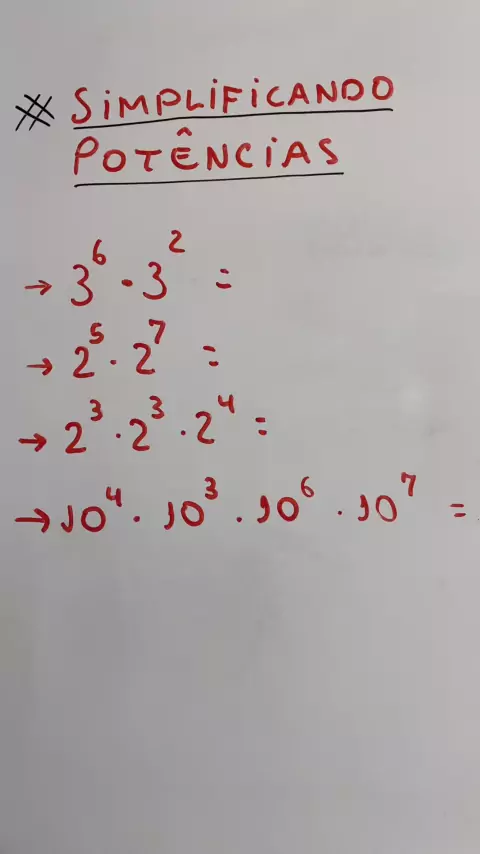 ※ SiMPLiFiCANDO
POTÊNCiAS
→ 3⁶ · 3² =
→ 2⁵ · 2⁷ =
→ 2³ · 2³ · 2⁴ =
→ 10⁴ · 10³ · 10⁶ · 10⁷ =